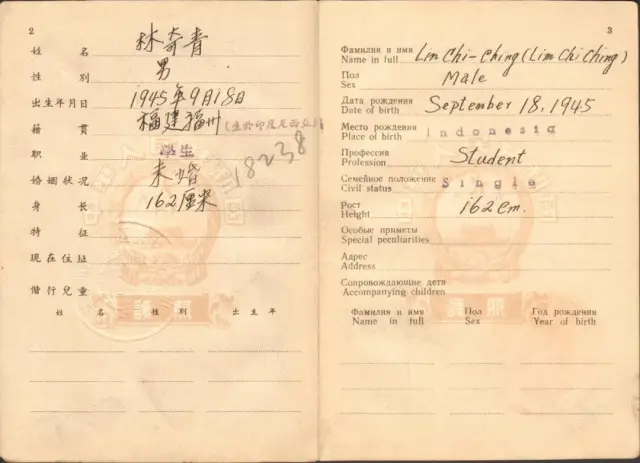 2
姓 名 林奇青
性 別 男
出生年月日 1945年9月18日
籍 貫 福建福州(生於印度尼西亞)
职 业 學生
18238
婚姻狀况 未婚
身 长 162厘米
特 征
現在住址
偕行兒童
姓 名 性 別 出生年
3
Фамилия и имя
Name in full Lin Chi-Ching (Lim Chi Ching)
Пол
Sex Male
Дата рождения
Date of birth September 18, 1945
Место рождения
Place of birth Indonesia
Профессия
Profession Student
Семейное положение
Civil status Single
Рост
Height 162 cm.
Особые приметы
Special peculiarities
Адрес
Address
Сопровождающие дети
Accompanying children
Фамилия и имя Пол Год рождения
Name in full Sex Year of birth